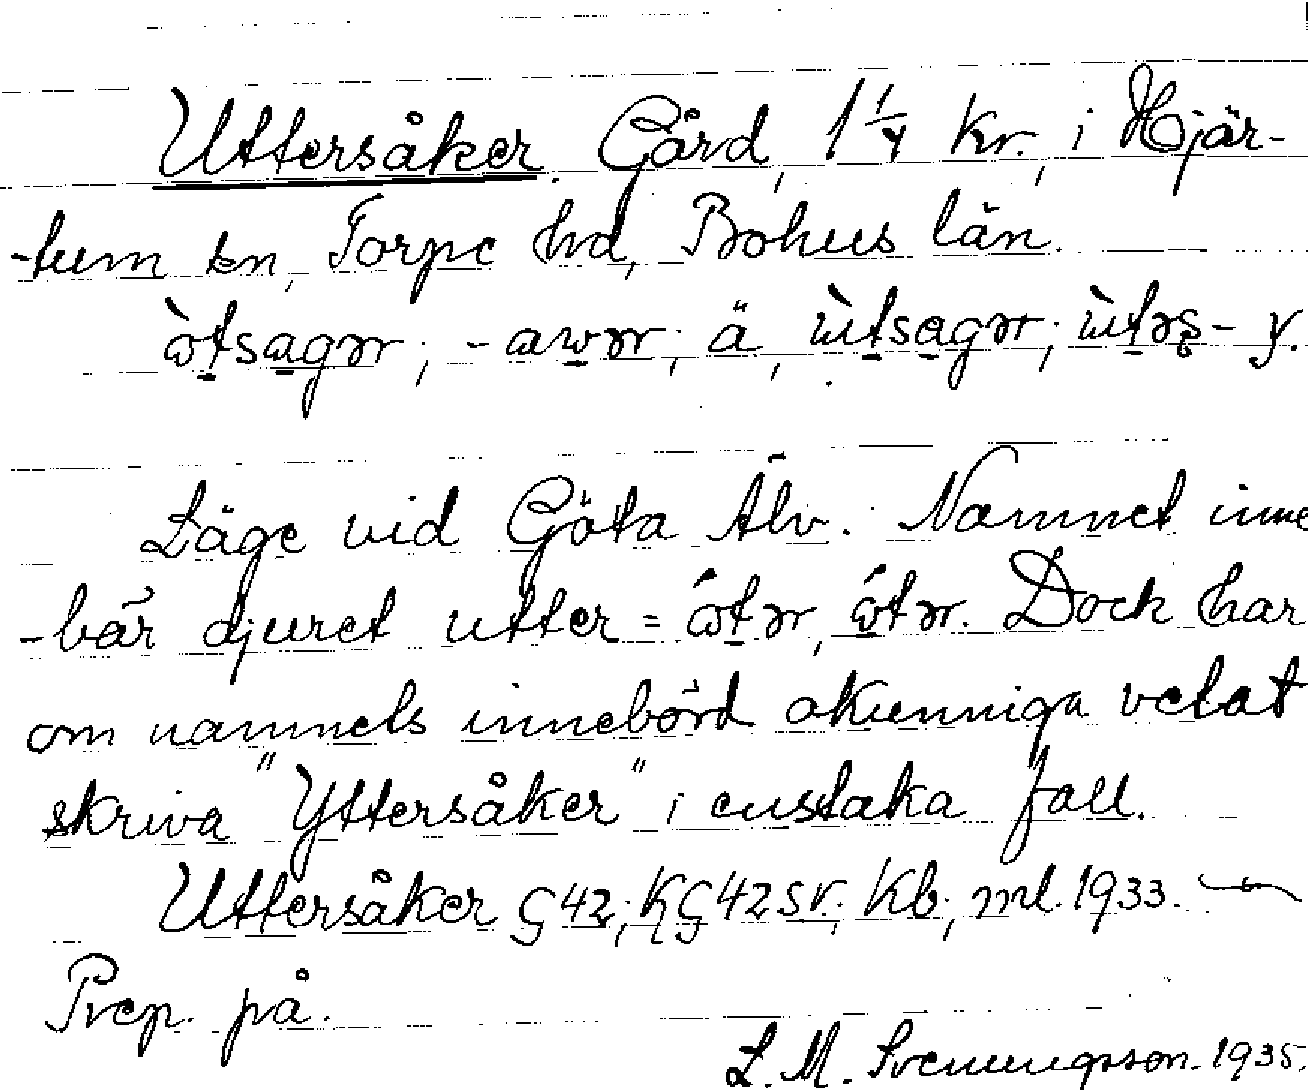 Uttersåker. Gård, 1 1/4 kr., i Hjär-
-tum sn, Torpe hd, Bohus län.
Läge vid Göta Älv. Namnet inne
-bär djuret utter = Dock har
om namnets innebörd okunniga velat
skriva "Yttersåker" i enstaka fall.
Uttersåker G 42; KG 42 SV; Kb; ml. 1933.
Prep. på.
L. M. Svenungsson. 1935.